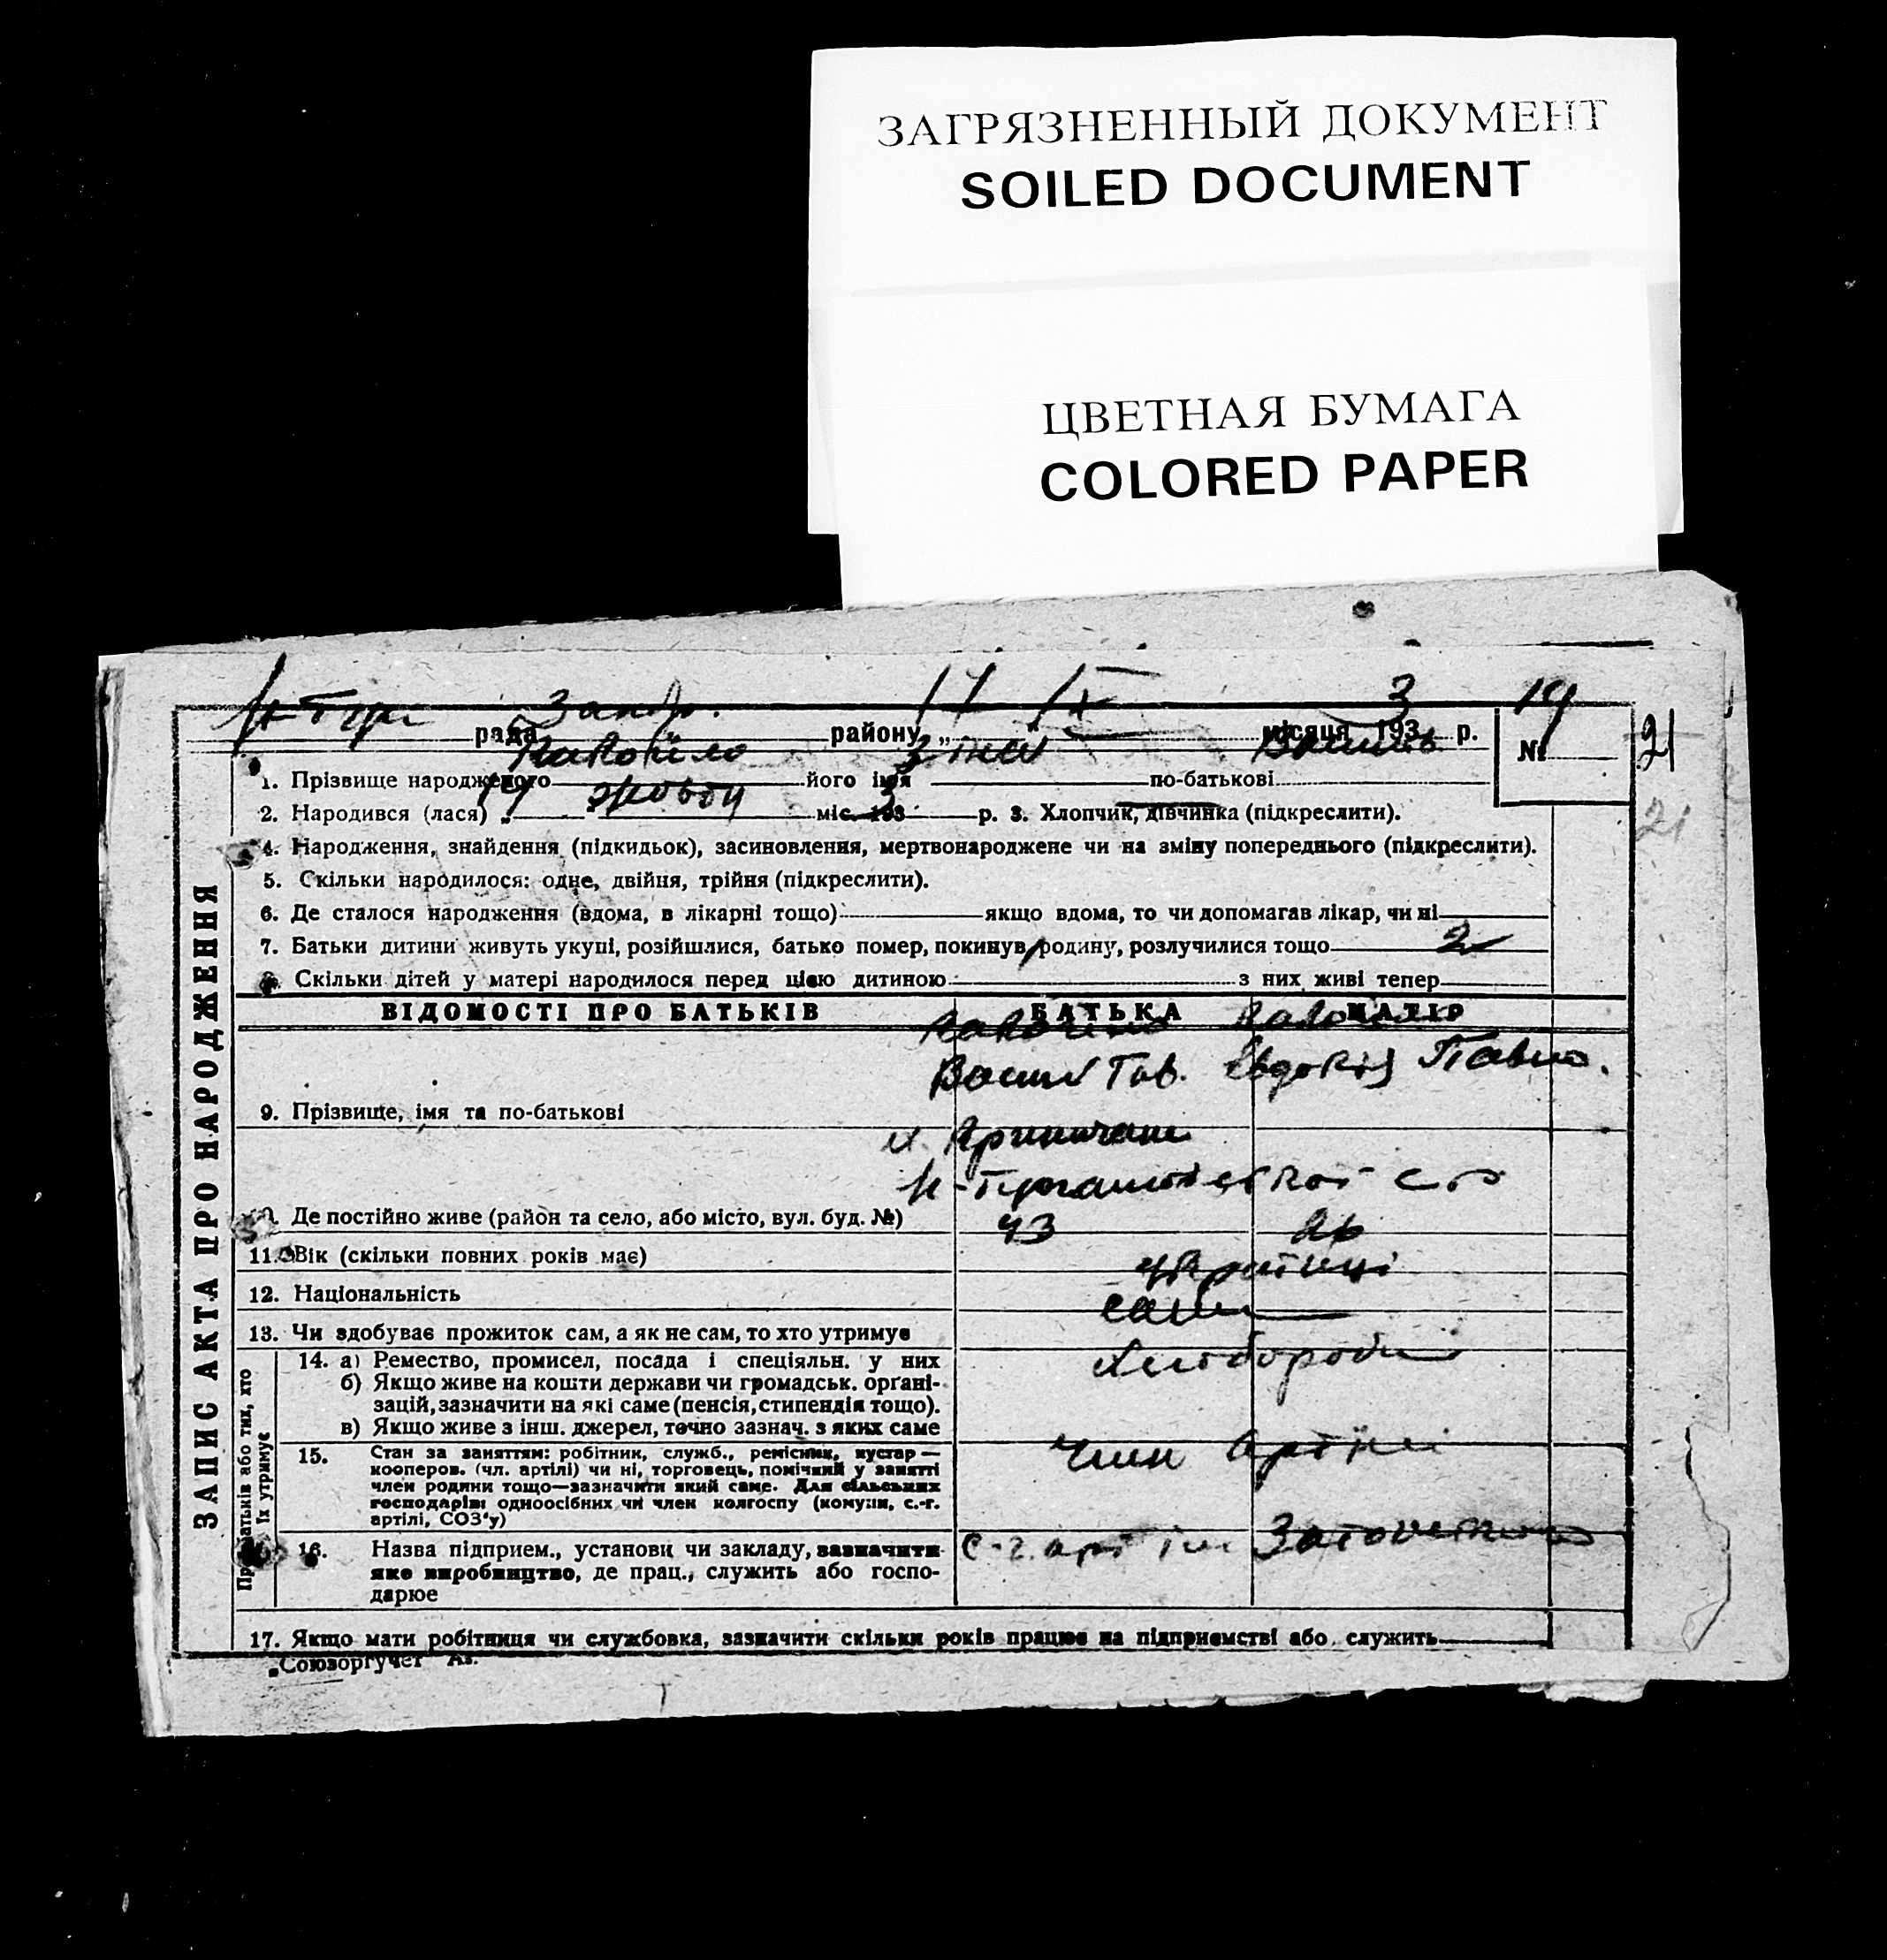 ЗАГРЯЗНЕННЫЙ ДОКУМЕНТ
SOILED DOCUMENT
ЦВЕТНАЯ БУМАГА
COLORED PAPER
17 IX 3 19
рада району „ “ місяця 193 р. № 21
1. Прізвище народженого його імя Зіна по-батькові
21
2. Народився (лася) „ 17 жовтн міс. 193 3 р. 3. Хлопчик, дівчинка (підкреслити).
4. Народження, знайдення (підкидьок), засиновлення, мертвонароджене чи на зміну попереднього (підкреслити).
5. Скільки народилося: одне, двійня, трійня (підкреслити).
6. Де сталося народження (вдома, в лікарні тощо) якщо вдома, то чи допомагав лікар, чи ні
7. Батьки дитини живуть укупі, розійшлися, батько помер, покинув родину, розлучилися тощо 2
8. Скільки дітей у матері народилося перед цією дитиною з них живі тепер
ЗАПИС АКТА ПРО НАРОДЖЕННЯ
ВІДОМОСТІ ПРО БАТЬКІВ БАТЬКА МАТІР
Евдокія Павл.
9. Прізвище, імя та по-батькові
10. Де постійно живе (район та село, або місто, вул. буд. №)
43 26
11. Вік (скільки повних років має)
українці
12. Національність
сами
13. Чи здобуває прожиток сам, а як не сам, то хто утримує
Хлібороби
Про батьків або тих, хто їх утримує
14. а) Ремество, промисел, посада і спеціяльн. у них
б) Якщо живе на кошти держави чи громадськ. органі-
зацій, зазначити на які саме (пенсія, стипендія тощо).
в) Якщо живе з інш. джерел, точно зазнач. з яких саме
член артілі
15. Стан за заняттям: робітник, служб., ремісник, кустар —
кооперов. (чл. артілі) чи ні, торговець, помічний у занятті
член родини тощо—зазначити який саме. Для сільських
господарів: одноосібних чи член колгоспу (комуни, с.-г.
артілі, СОЗ'у)
с-г. арт ім
16. Назва підприєм., установи чи закладу, зазначити
яке виробництво, де прац., служить або госпо-
дарює
17. Якщо мати робітниця чи службовка, зазначити скільки років працює на підприємстві або служить
„Союзоргучет"